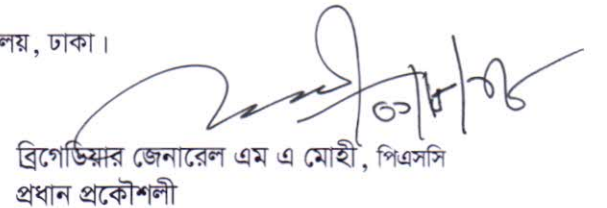 লয়, ঢাকা।
ব্রিগেডিয়ার জেনারেল এম এ মোহী, পিএসসি
প্রধান প্রকৌশলী